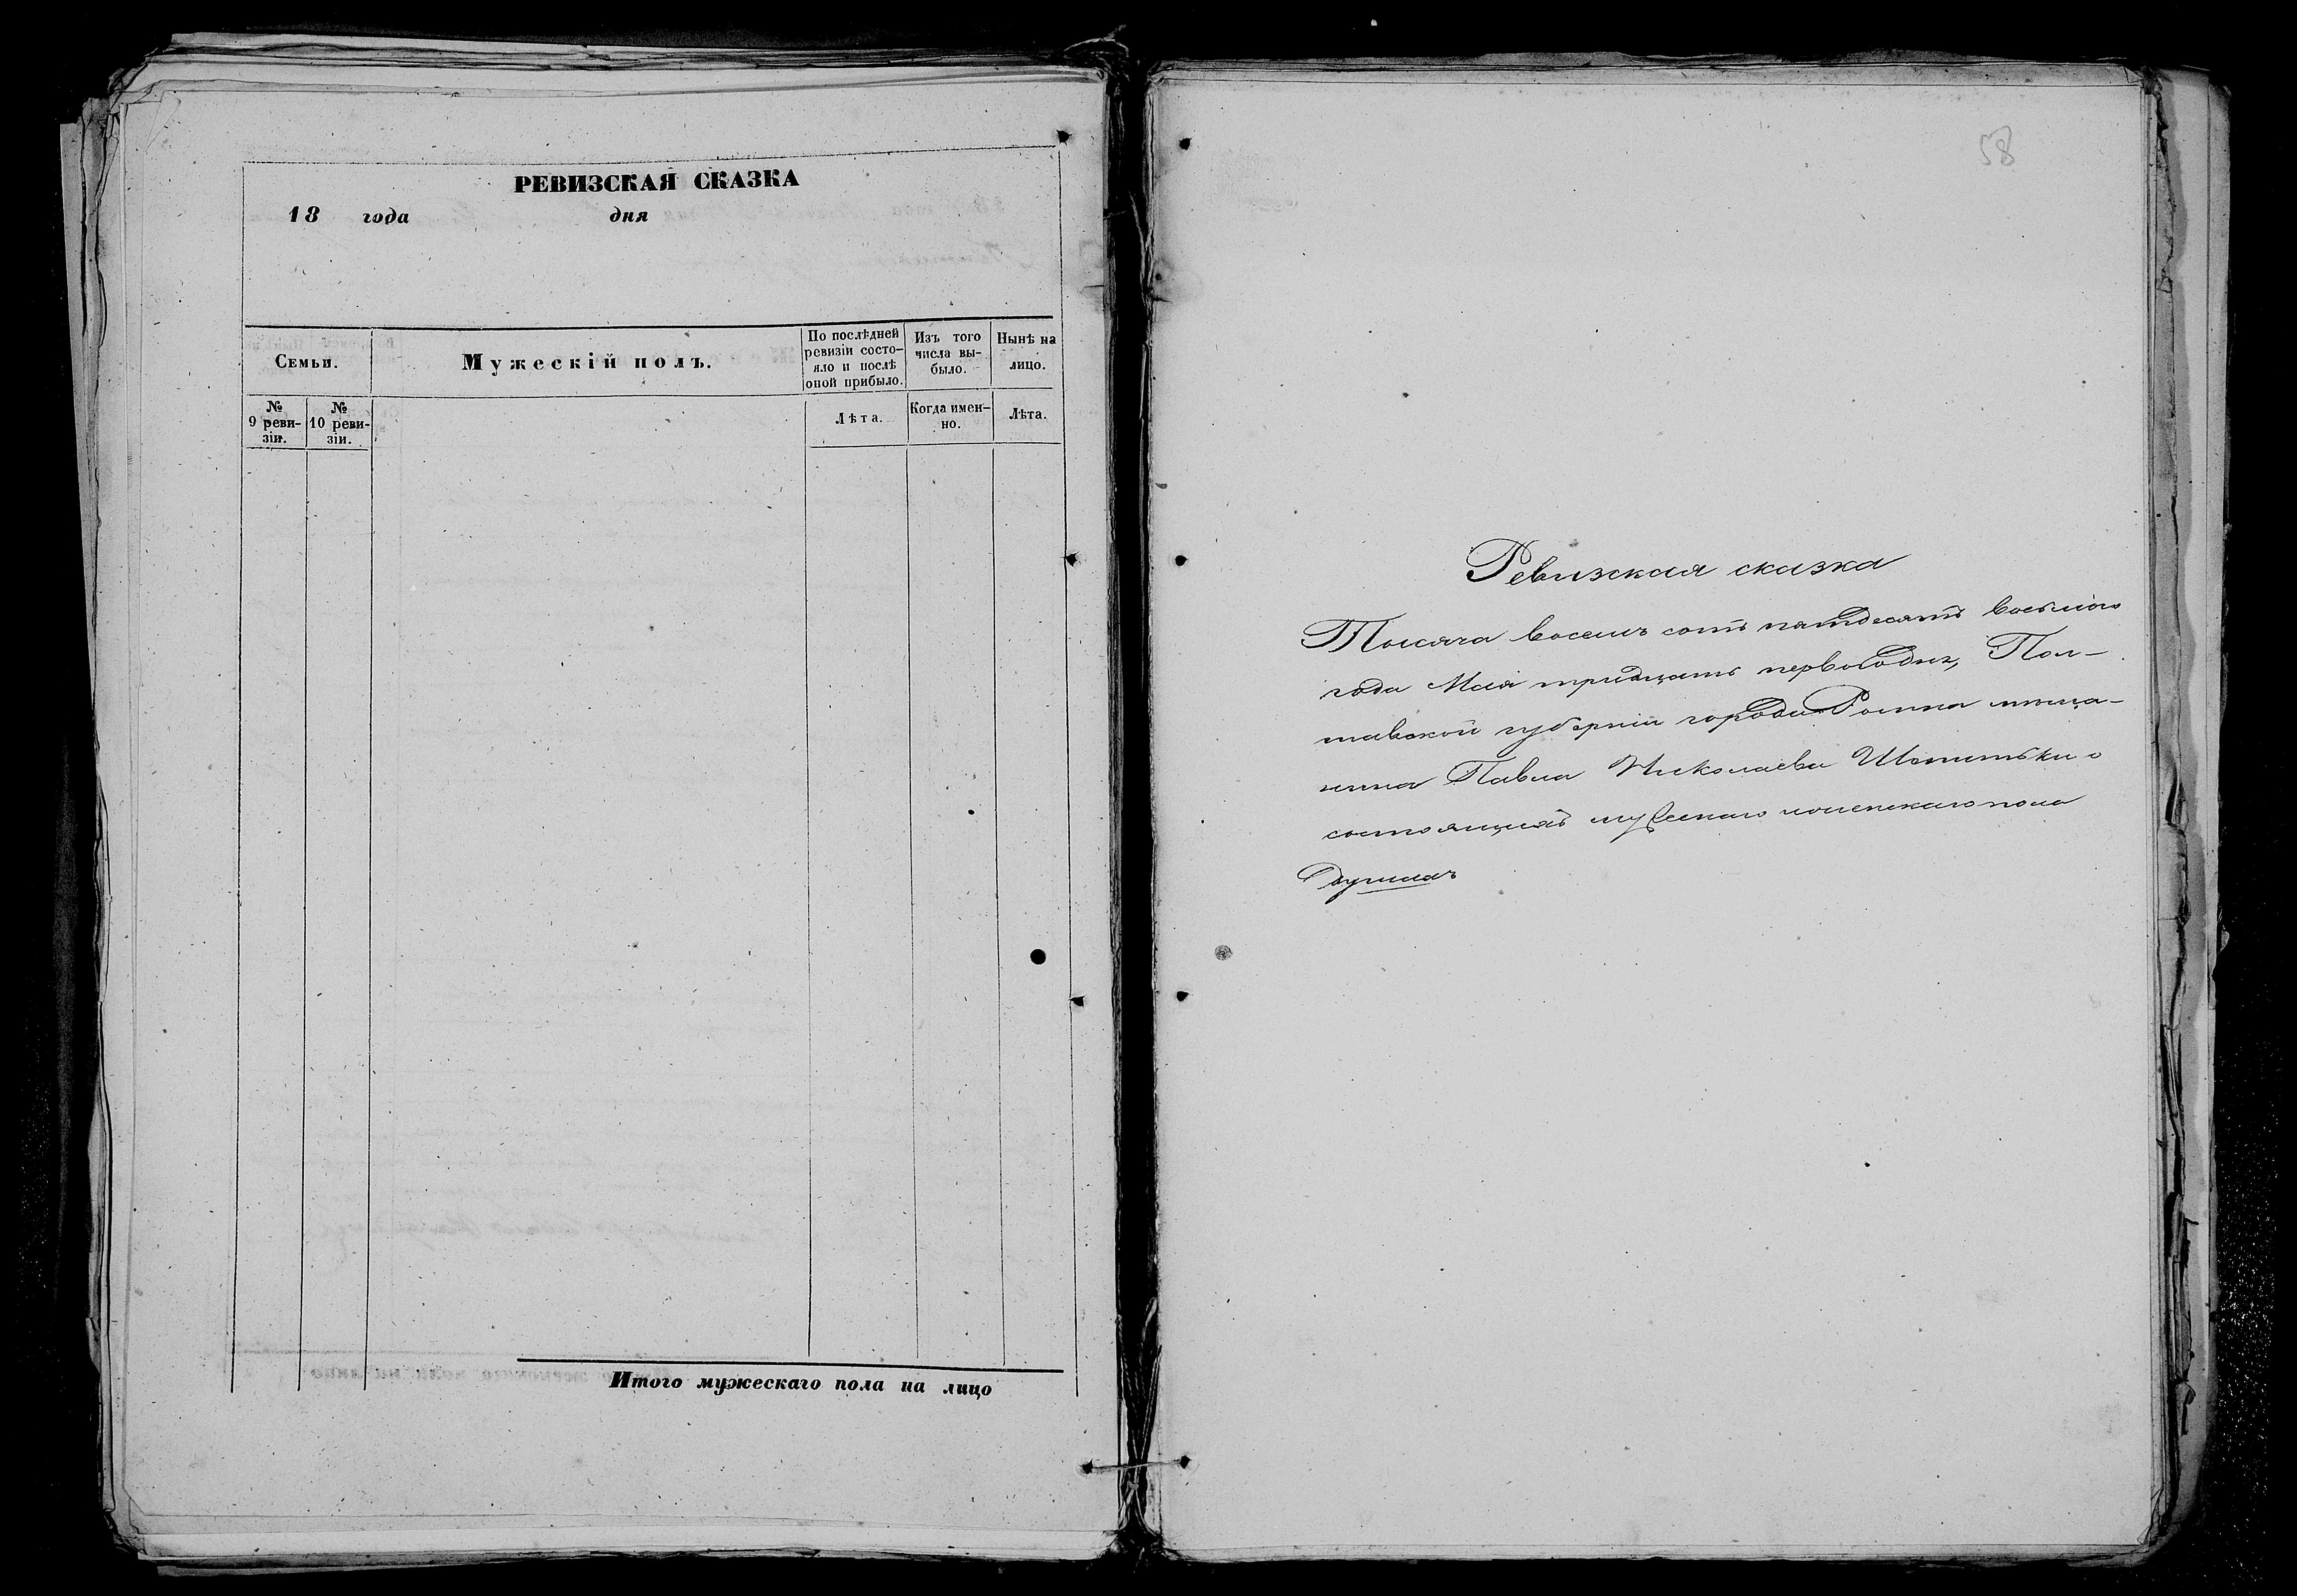 РЕВИЗСКАЯ СКАЗКА
18 года дня
Семьи.
Мужескій полъ.
По послѣдней ревизіи состо-
яло и послѣ
оной прибыло.
Изъ того
числа вы-
было.
Нынѣ на
лицо.
№
9 реви-
зіи.
№
10 реви-
зіи.
Лѣта.
Когда имен-
но.
Лѣта.
Итого мужескаго пола на лицо
58
Ревизская сказка
Тысяча восемь сотъ пятдесятъ восьмого
года Мая тридцать перваго дня, Пол-
тавской губерніи города Ромна мѣща-
нина Павла Николаева о
состоящихъ мужескаго и женскаго пола
душахъ